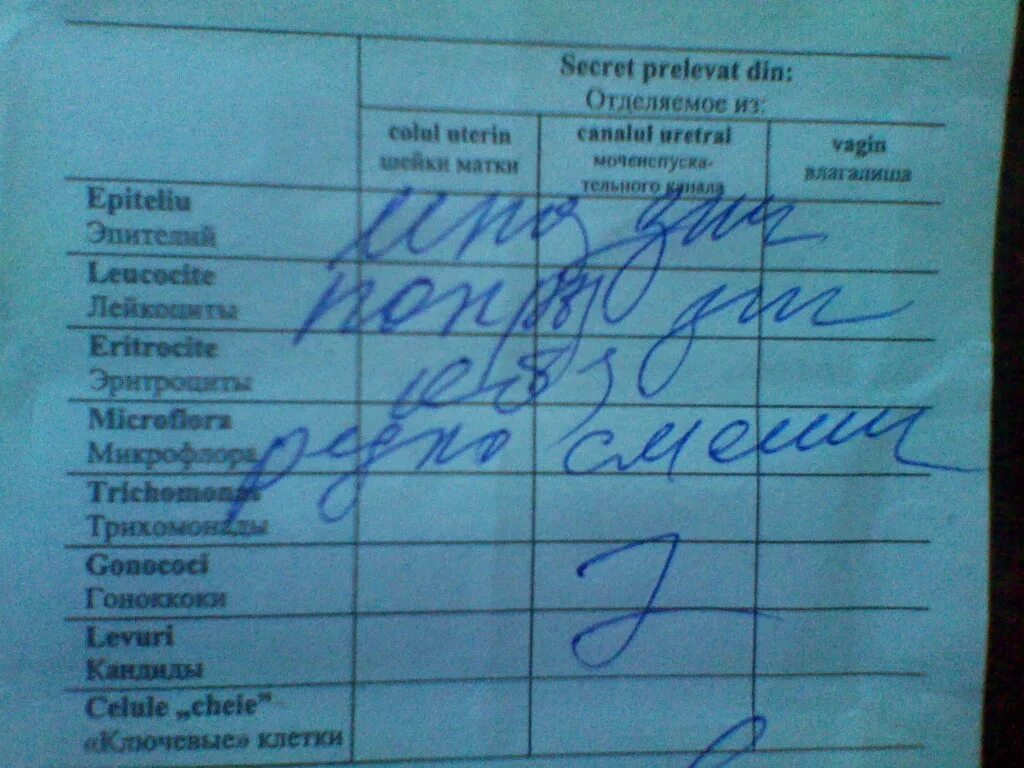 Secret prelevat din:
Отделяемое из:
colul uterin
шейки матки
canalul uretral
мочеиспуска-
тельного канала
vagin
влагалища
Epiteliu
Эпителий
Leucocite
Лейкоциты
Eritrocite
Эритроциты
Microflora
Микрофлора
редко смеш
Trichomonas
Трихомонады
Gonococi
Гоноккоки
Levuri
Кандиды
Celule „cheie”
«Ключевые» клетки